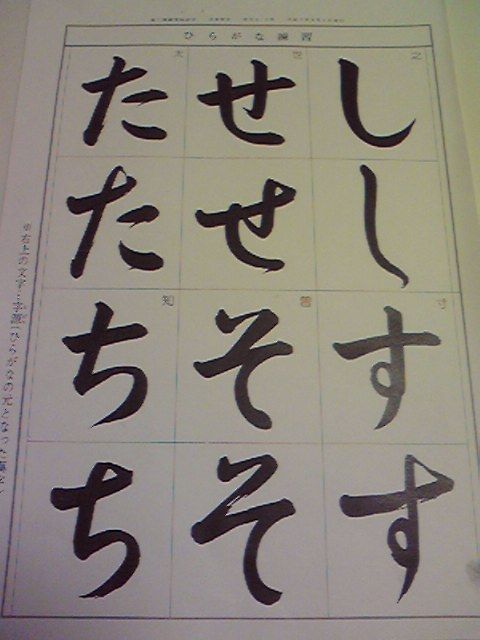 ひらがな練習
之
し
し
寸
す
す
世
せ
せ
曽
そ
そ
太
た
た
知
ち
ち
右上の文字…字源(ひらがなの元となった漢字)